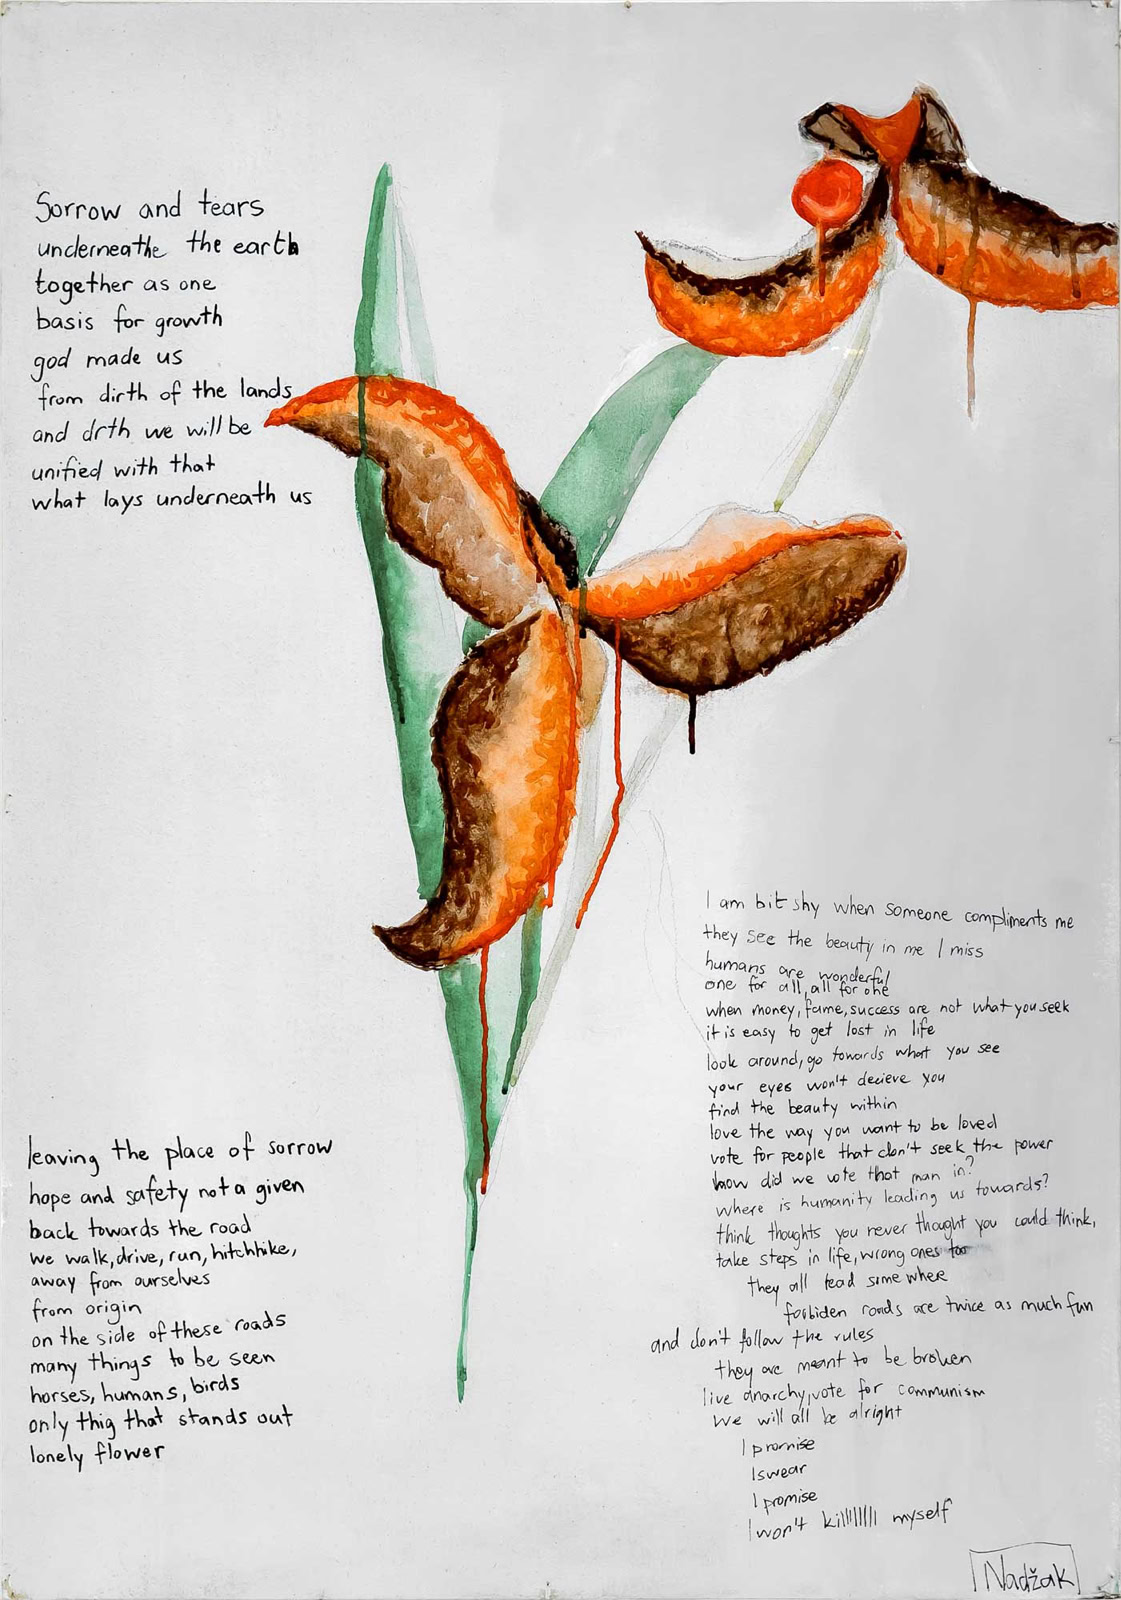 Sorrow and tears
underneathe the earth
together as one
basis for growth
god made us
from dirth of the lands
and drth we will be
unified with that
what lays underneath us
leaving the place of sorrow
hope and safety not a given
back towards the road
we walk, drive, run, hitchhike,
away from ourselves
from origin
on the side of these roads
many things to be seen
horses, humans, birds
only thig that stands out
lonely flower
I am bit shy when someone compliments me
they see the beauty in me I miss
humans are wonderful
one for all, all for one
when money, fame, success are not what you seek
it is easy to get lost in life
look around, go towards what you see
your eyes won't decieve you
find the beauty within
love the way you want to be loved
vote for people that don't seek the power
how did we vote that man in?
where is humanity leading us towards?
think thoughts you never thought you could think,
take steps in life, wrong ones too
they all lead some where
forbiden roads are twice as much fun
and don't follow the rules
they are meant to be broken
live anarchy, vote for communism
we will all be alright
I promise
I swear
I promise
I won't killlllllll myself
Nadžak